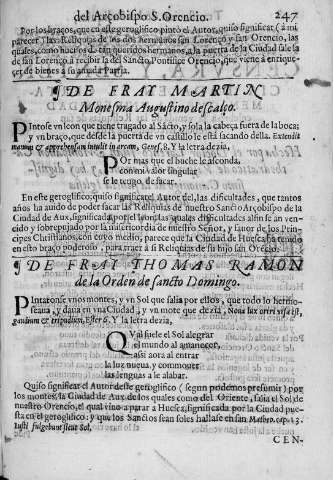 del Arçobispo S. Orencio. 247
Por los laços, que en este geroglifico pintò el Autor, quiso significar (a mi
parecer) las Reliquias de los dos hermanos san Lorenço y san Orencio, las
quales, como huessos de tan queridos hermanos, a la puerta de la Ciudad sale la
de san Lorenço à recibir la del Sancto Pontifice Orencio, que viene à enrique-
çer de bienes à su amada Patria.
DE FRAY MARTIN
Monesma Augustino descalço.
Pintose vn leon que tiene tragado al Sãcto, y sola la cabeça fuera de la boca;
y vn braço, que desde la puerta de vn castillo le està sacando della. Extensa
manum & apprehensam intulit in arcam, Genes. 8. Y la letra dezia,
POr mas que el buche le asconda,
con mi valor singular
se le tengo de sacar.
En este geroglifico, quiso significar el Autor del, las dificultades, que tantos
años ha auido de poder sacar las Reliquias de nuestro Sancto Arçobispo de la
Ciudad de Aux, significada por el leon; las quales dificultades al fin se an ven-
cido y sobrepujado por la misericordia de nuestro Señor, y fauor de los Princi-
pes Christianos, con cuyo medio, parece que la Ciudad de Huesca ha tenido
en esto braço poderoso, para traer à si Reliquias de su hijo san Orencio.
DE FRAY THOMAS RAMON
de la Orden de sancto Domingo.
Pintaronse vnos montes, y vn Sol que salia por ellos, que todo lo hermo-
seaua, y daua en vna Ciudad, y vn mote que dezia, Noua lux oriri visa est,
gaudium & tripudium, Ester 8. Y la letra dezia,
QVal suele el Sol alegrar
el mundo al amanecer,
assi aora al entrar
la luz nueua, y commouer
las lenguas a le alabar.
Quiso significar el Autor deste geroglifico (segun podemos presumir) por
los montes, la Ciudad de Aux, de los quales como del Oriente, salia el Sol de
nuestro Orencio, el qual vino a parar a Huesca, significada por la Ciudad pue-
sta en el geroglifico: y que los Sanctos sean soles hallase en san Matheo, cap. 13.
Iusti fulgebunt sicut Sol.
CEN-